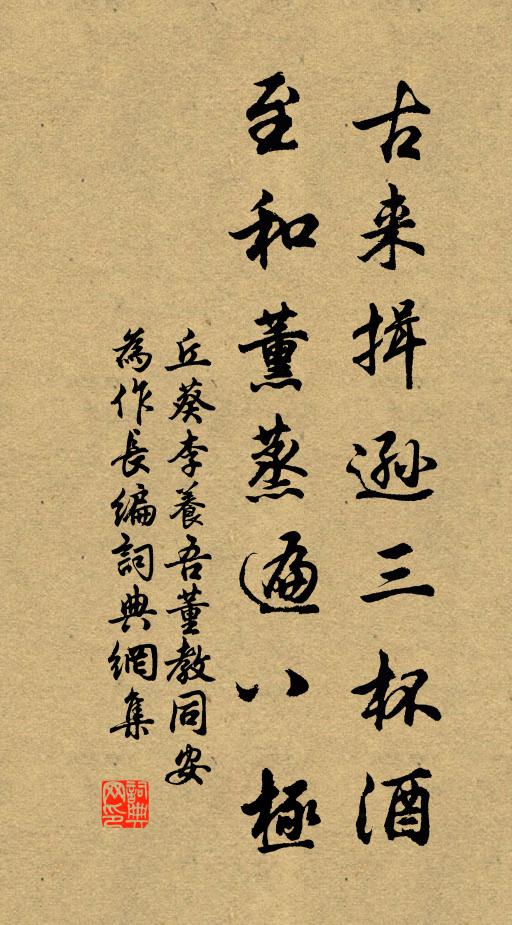 古来揖遜三杯酒
至和薰蒸遍八極
丘葵李養吾董教同安
為作長編詞典網集
詞典网印